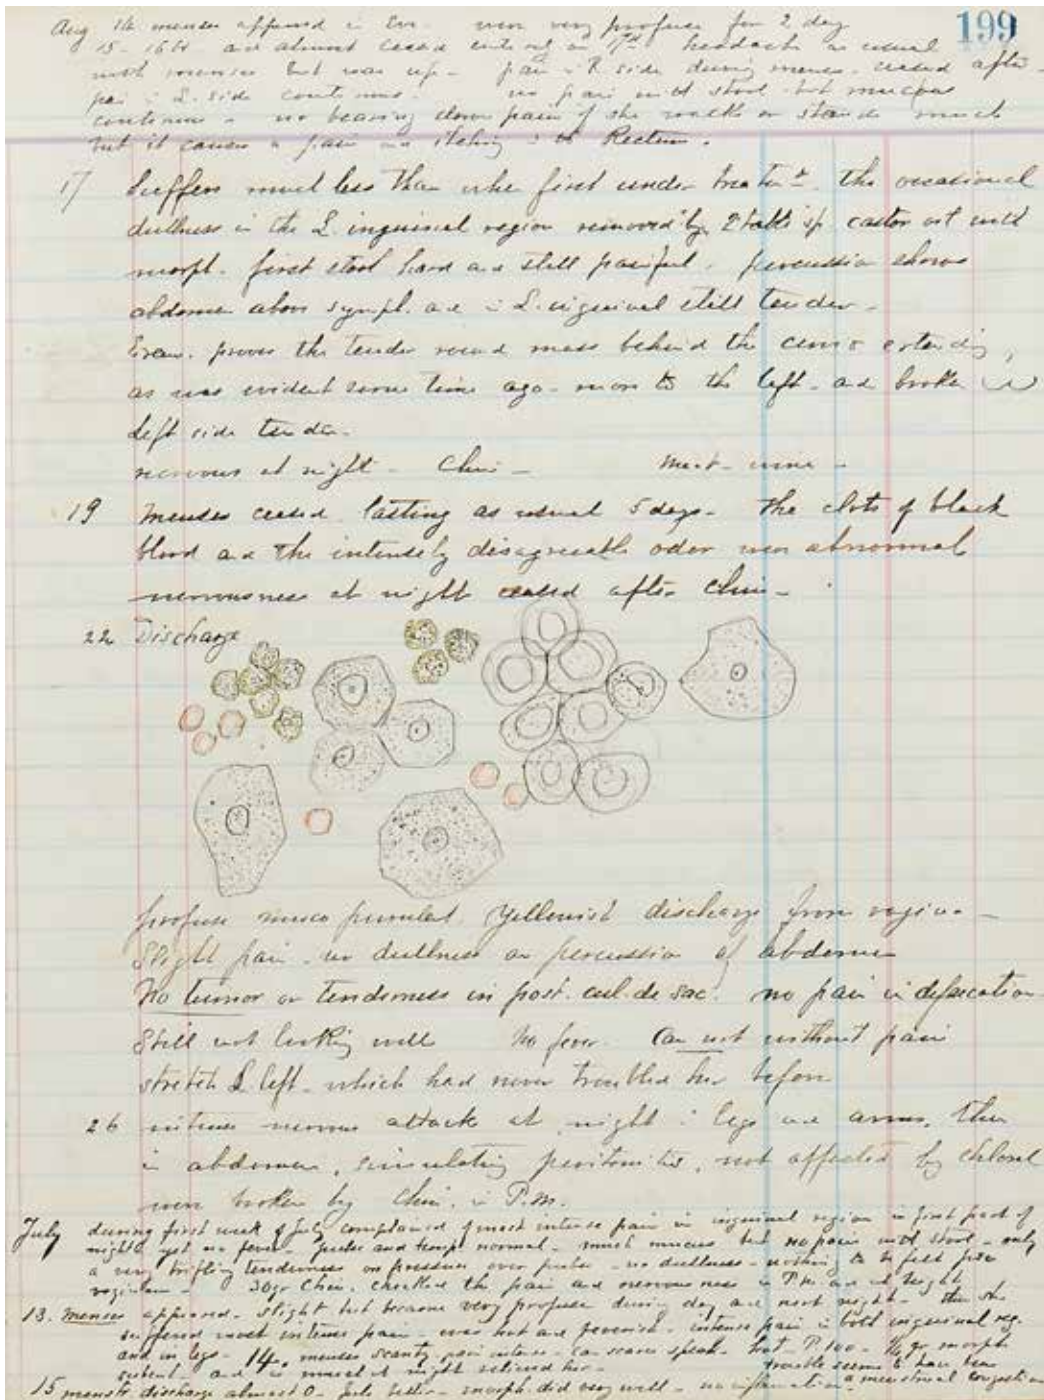 199
Aug 14 menses appeared in Eve. were very profuse for 2 days
15-16th and almost ceased entirely on 17th headache as usual
with menses but was up - pain in R side during menses. ceased after -
pain in L. side continues. no pain with stool but mucous
continues - no bearing down pain if she walks or stands much
but it causes a pain and itching in the Rectum.
17 Suffers much less than when first under treatmt. the occasional
dullness in the L inguinal region removed by 2 tablesp. castor oil with
morph. first stool hard and still painful. percussion shows
abdomen above symph. and in L. inguinal still tender -
Exam. proves the tender round mass behind the extending,
as was evident some time ago - more to the left - and broken
left side tender -
nervous at night - Chin - meat - wine -
19 Menses ceased lasting as usual 5 days - the clots of black
blood and the intensely disagreeable odor were abnormal
nervousness at night ceased after Chin -
22 Discharge
profuse muco purulent yellowish discharge from vagina -
Slight pain - no dullness on percussion of abdomen
No tumor or tenderness in post. cul. de sac. no pain in defaecation
Still not looking well No fever. Can not without pain
stretch L left - which had never troubled her before
26 intense nervous attack at night in legs and arms, then
in abdomen, simulating peritonitis, not affected by chloral
were broken by Chin. in P.M.
July during first week of July complained of most intense pain in inguinal region in first part of
night yet no fever - pulse and temp normal - much mucus but no pain with stool - only
a very trifling tenderness on pressure over pubes - no dullness - nothing to be felt per
vaginam - 30gr Chin. checked the pain and nervousness in P.M. and at night
13. menses appeared - slight but became very profuse during day and next night - then she
suffered most intense pain - was hot and feverish - intense pain in both inguinal reg.
and in legs - 14. menses scanty, pain intense - can scarce speak - hot - P 100 - gr morph
and at night relieved her -
trouble seems to have been
15 menstr. discharge almost 0 - feels better - morph. did very well - no inflammation a menstrual congestion